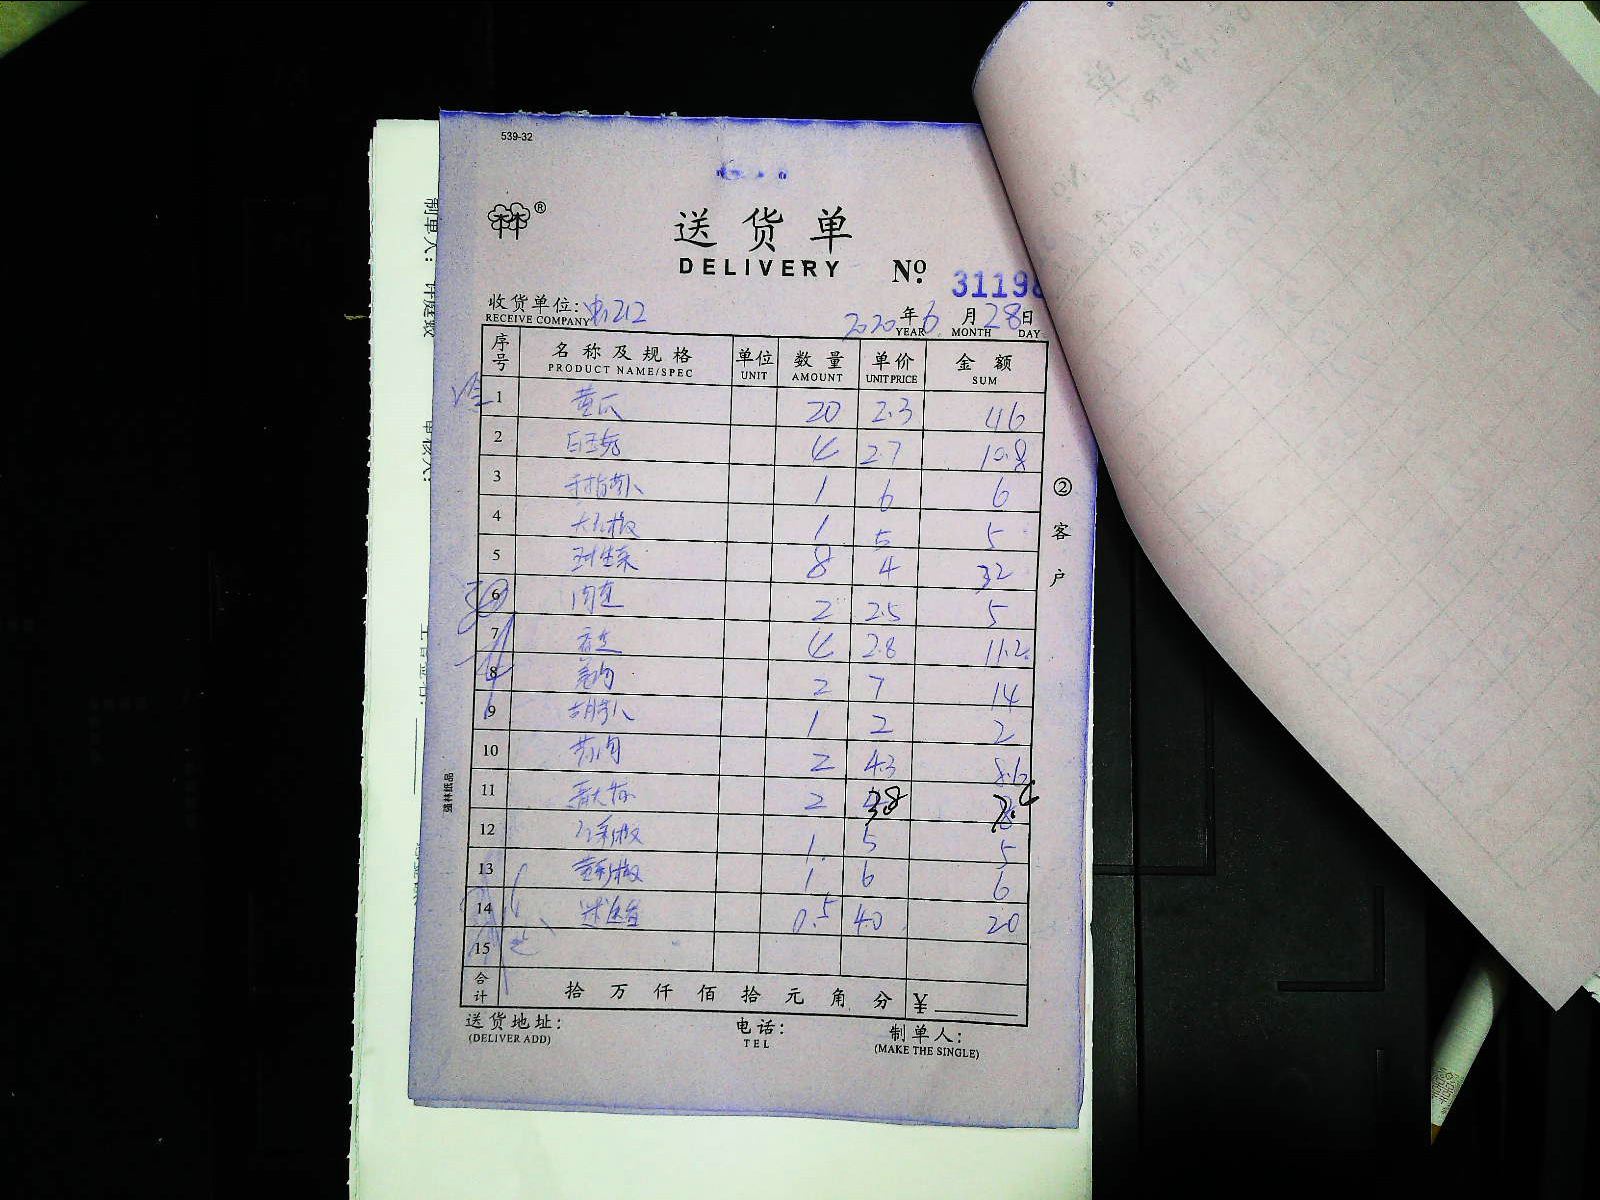 539-32
林林®
送货单
DELIVERY
№ 31198
收货单位: 212
RECEIVE COMPANY
2020年6月28日
YEAR MONTH DAY
序号 名称及规格 单位 数量 单价 金额
PRODUCT NAME/SPEC UNIT AMOUNT UNIT PRICE SUM
1 黄瓜 20 2.3 46
2 白玉菇 4 2.7 10.8
3 手指萝卜 1 6 6
4 大红椒 1 5 5
5 球生菜 8 4 32
6 2 2.5 5
7 4 2.8 11.2
8 2 7 14
9 胡萝卜 1 2 2
10 2 4.3 8.6
11 2 3.8 7.6
12 红彩椒 1 5 5
13 黄彩椒 1 6 6
14 0.5 40 20
15
合计 拾 万 仟 佰 拾 元 角 分 ¥
送货地址:
(DELIVER ADD)
电话:
TEL
制单人:
(MAKE THE SINGLE)
②客户
强林纸品
制单人:
审核人: